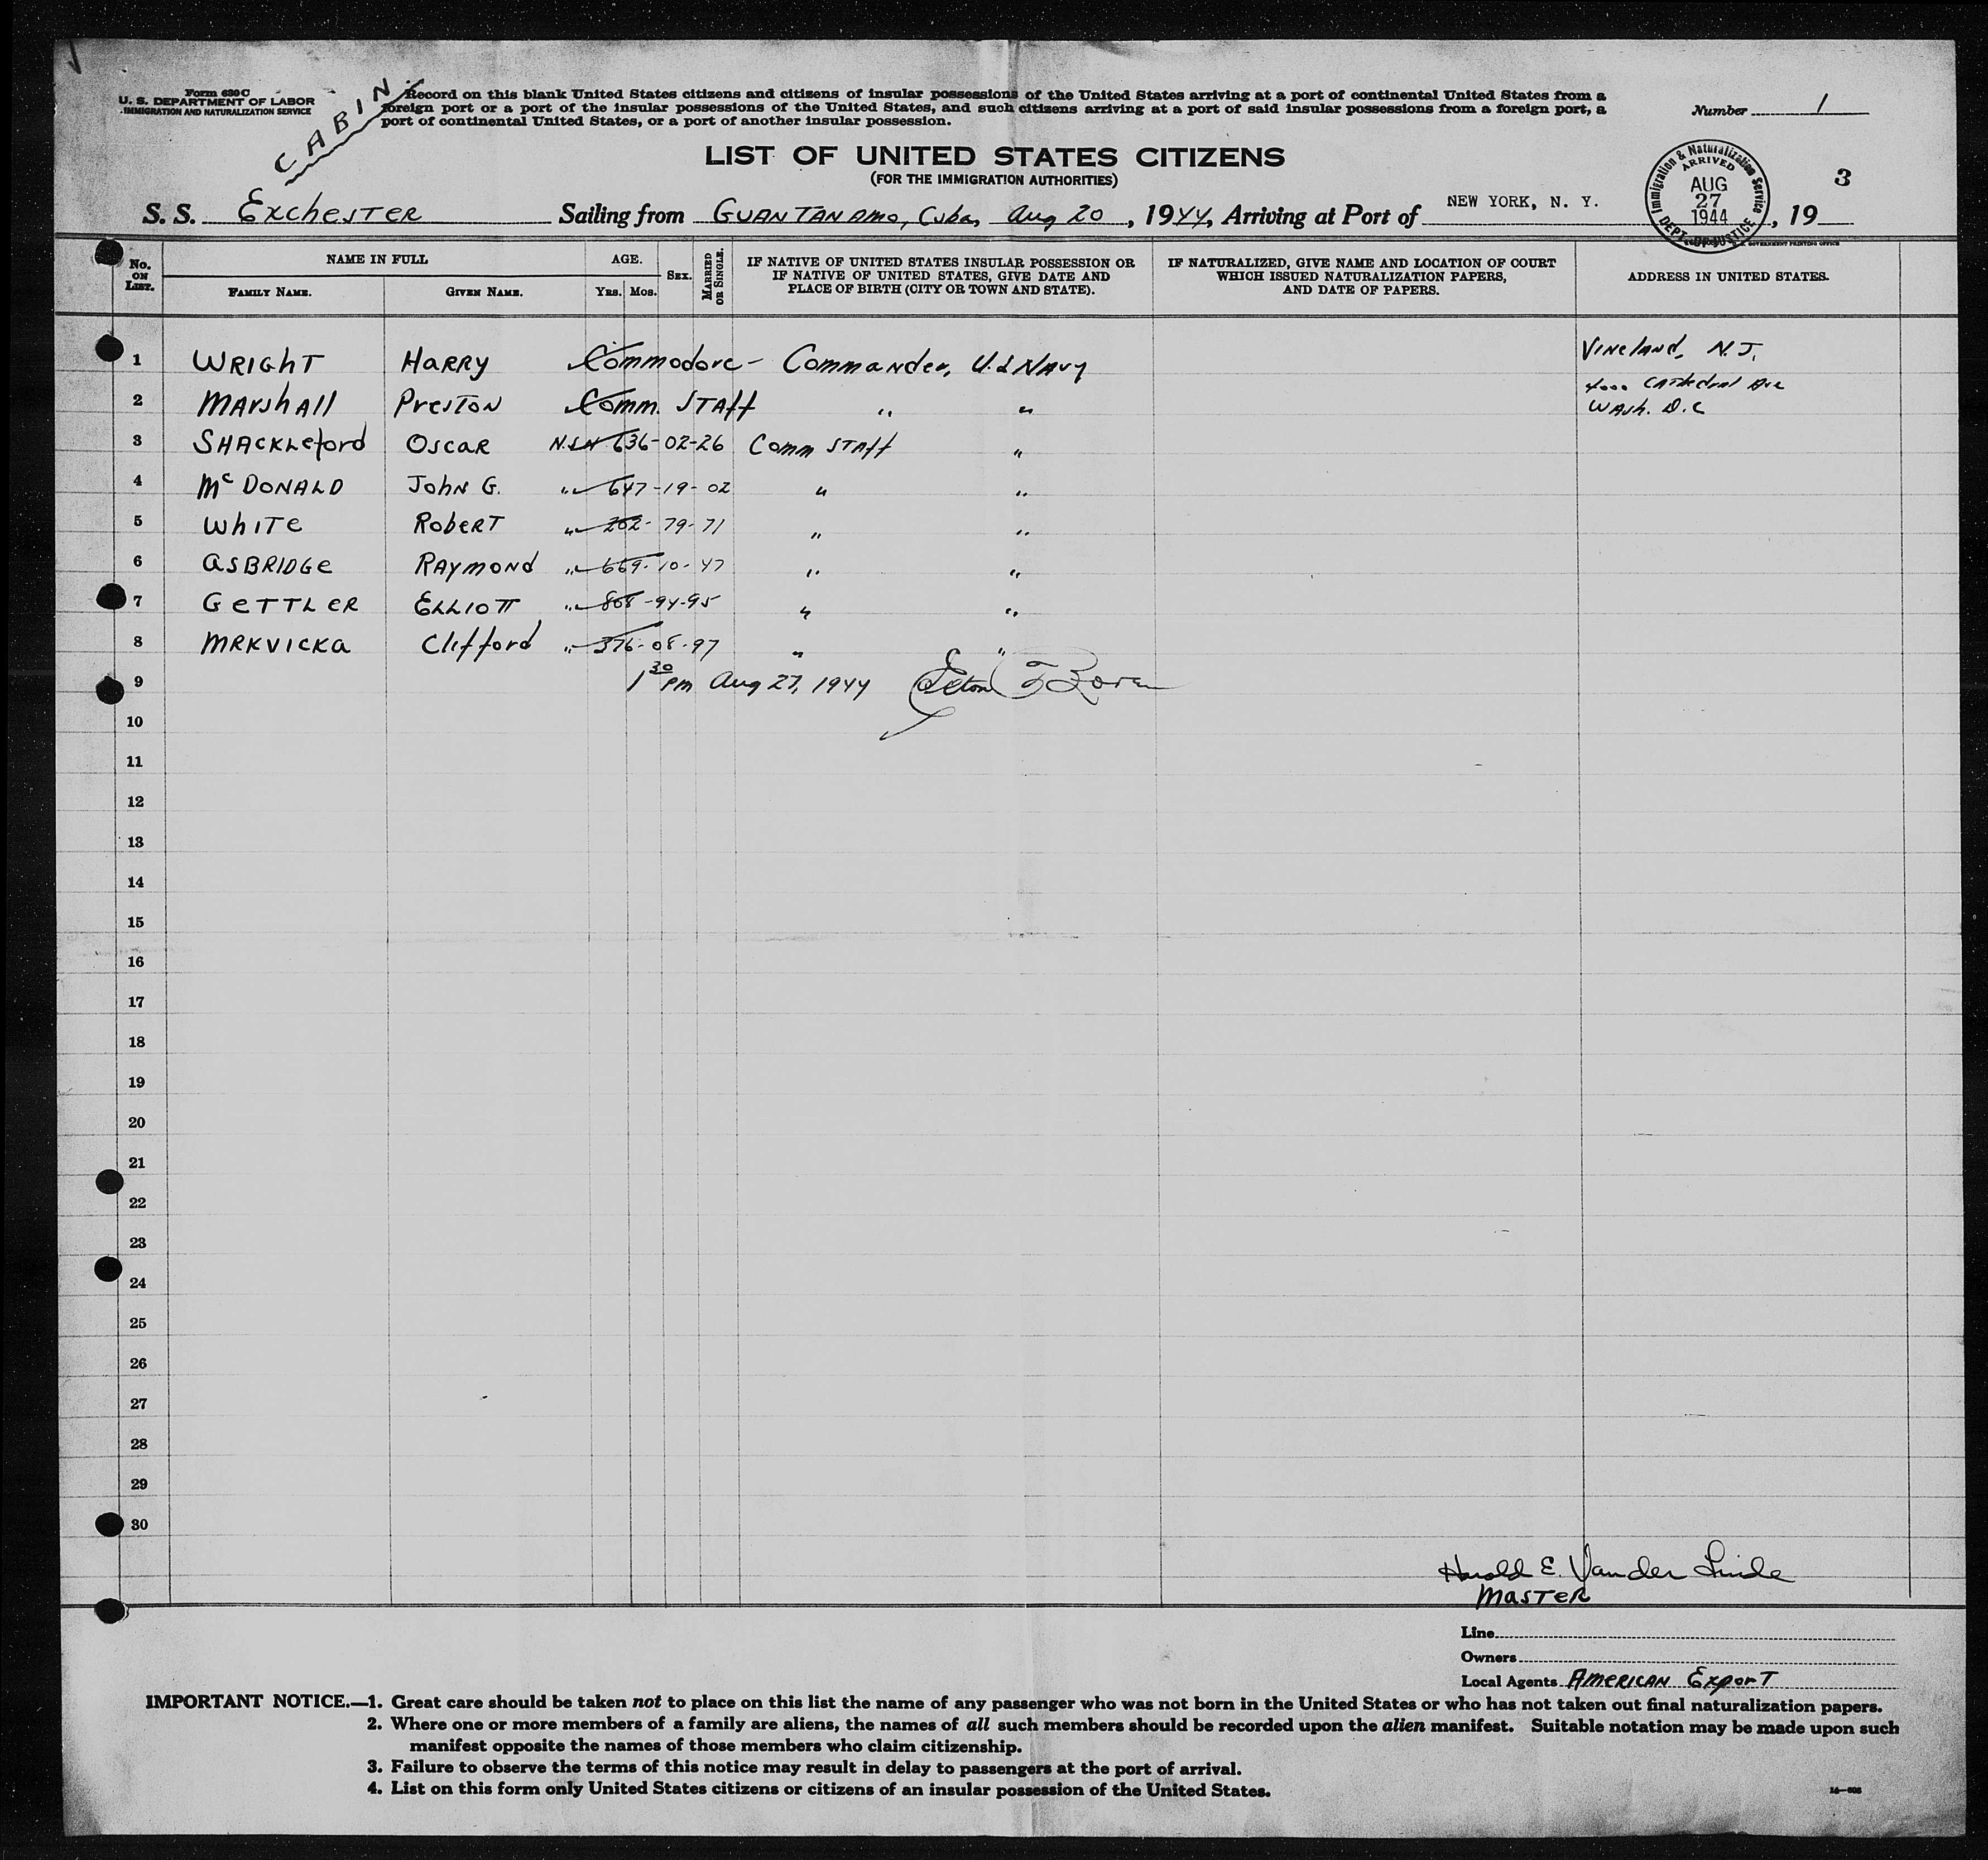 Form 630 C
U. S. DEPARTMENT OF LABOR
IMMIGRATION AND NATURALIZATION SERVICE
CABIN
Record on this blank United States citizens and citizens of insular possessions of the United States arriving at a port of continental United States from a
foreign port or a port of the insular possessions of the United States, and such citizens arriving at a port of said insular possessions from a foreign port, a
port of continental United States, or a port of another insular possession.
Number 1
LIST OF UNITED STATES CITIZENS
(FOR THE IMMIGRATION AUTHORITIES)
Immigration & Naturalization Service
ARRIVED
AUG
27
1944
DEPT. OF JUSTICE
3
S. S. Exchester Sailing from Guantanamo, Cuba, Aug 20, 1944, Arriving at Port of NEW YORK, N. Y. , 19
GOVERNMENT PRINTING OFFICE
No. ON LIST. NAME IN FULL AGE. SEX. MARRIED OR SINGLE. IF NATIVE OF UNITED STATES INSULAR POSSESSION OR IF NATIVE OF UNITED STATES, GIVE DATE AND PLACE OF BIRTH (CITY OR TOWN AND STATE). IF NATURALIZED, GIVE NAME AND LOCATION OF COURT WHICH ISSUED NATURALIZATION PAPERS, AND DATE OF PAPERS. ADDRESS IN UNITED STATES.
FAMILY NAME. GIVEN NAME. YRS. MOS.
1 WRIGHT HARRY Commodore - Commander, U.S Navy Vineland, N.J.
2 MARSHALL PRESTON Comm. Staff " " 4000 Cathedral Ave Wash. D.C
3 SHACKLEFORD OSCAR N.S.N 636-02-26 Comm Staff "
4 McDONALD JOHN G. " 647-19-02 " "
5 WHITE ROBERT " 262-79-71 " "
6 ASBRIDGE RAYMOND " 669-10-47 " "
7 GETTLER ELLIOTT " 808-94-95 " "
8 MRKVICKA Clifford " 376-08-97 " "
9 1 30 PM Aug 27, 1944
10
11
12
13
14
15
16
17
18
19
20
21
22
23
24
25
26
27
28
29
30
Harold E. Vander Linde
MASTER
Line
Owners
Local Agents American Export
IMPORTANT NOTICE.—1. Great care should be taken not to place on this list the name of any passenger who was not born in the United States or who has not taken out final naturalization papers.
2. Where one or more members of a family are aliens, the names of all such members should be recorded upon the alien manifest. Suitable notation may be made upon such
manifest opposite the names of those members who claim citizenship.
3. Failure to observe the terms of this notice may result in delay to passengers at the port of arrival.
4. List on this form only United States citizens or citizens of an insular possession of the United States.